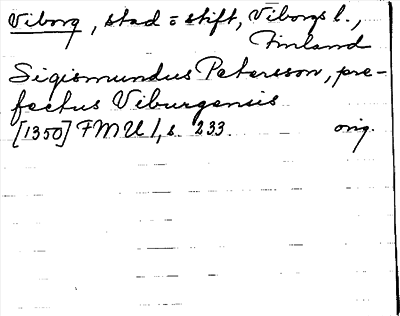 Viborg, stad o stift, Viborgs l.,
Finland
Sigismundus Petersson, pre-
fectus Viburgensis
[1350] FMU 1, s. 233. orig.